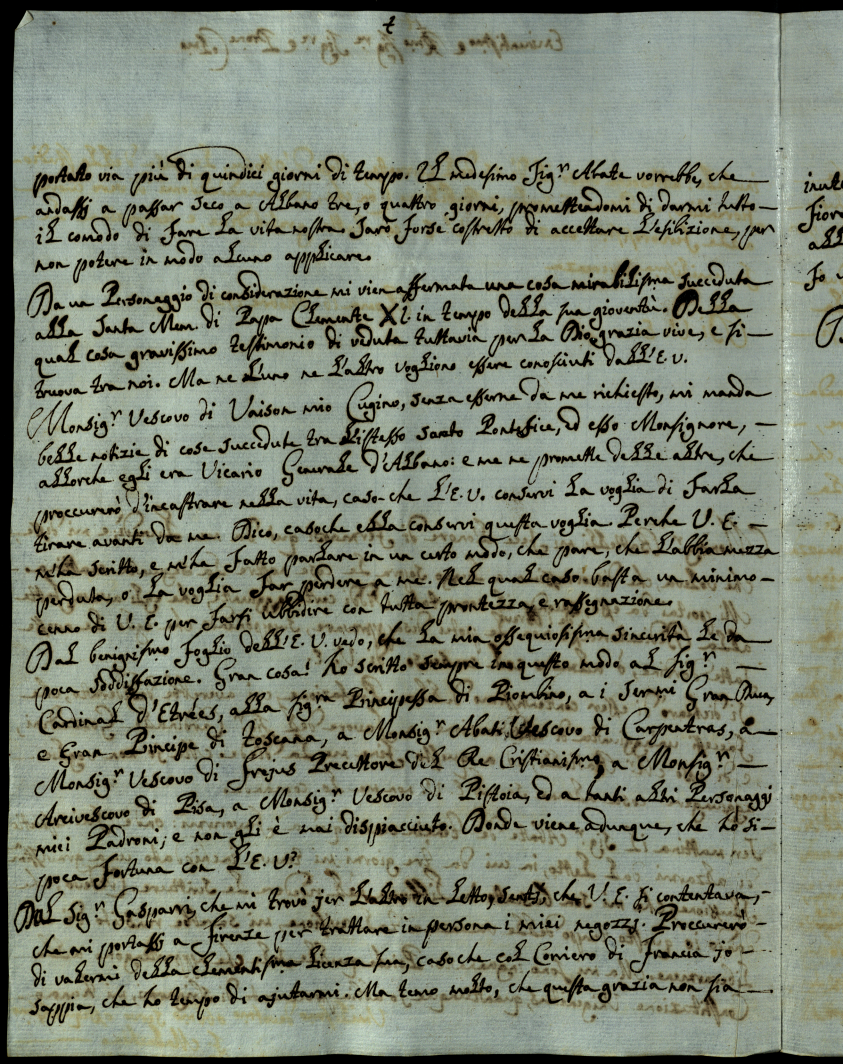 portato via più di quindici giorni di tempo. Il medesimo Sig.r Abate vorrebbe, che
andassi a passar seco a Albano tre, o quattro giorni, promettendomi di darmi tutto
il comodo di fare la vita nostra. Sarò forse costretto di accettare l'esibizione, per
non potere in modo alcuno applicare.
Da un Personaggio di considerazione mi vien affermata una cosa mirabilissima succeduta
alla Santa Mem. di Papa Clemente XI. in tempo della sua gioventù. Della
qual cosa gravissimo testimonio di veduta tuttavia per la Dio grazia vive, e si
truova tra noi. Ma ne l'uno ne l'altro vogliono essere conosciuti dall'E.V.
Monsig.r Vescovo di Vaison mio Cugino, senza esserne da me richiesto, mi manda
belle notizie di cose succedute tra l'istesso Santo Pontefice, ed esso Monsignore,
allorche egli era Vicario Generale d'Albano: e me ne promette delle altre, che
proccurerò d'incastrare nella vita, caso che l'E.V. conservi la voglia di farla
tirare avanti da me. Dico, caso che ella conservi questa voglia. Perche V.E.
m'ha scritto, e m'ha fatto parlare in un certo modo, che pare, che l'abbia mezza
perduta, o la voglia far perdere a me. Nel qual caso basta un minimo
cenno di V.E. per farsi ubbidire con tutta prontezza, e rassegnazione.
Dal benignissimo foglio dell'E.V. vedo, che la mia ossequiosissima sincerità le dà
poca soddisfazione. Gran cosa! ho scritto sempre in questo modo al Sig.r
Cardinal d'Etrées, alla Sig.ra Principessa di Piombino, a i Sermi Gran Duca,
e Gran Principe di Toscana, a Monsig.r Abati Vescovo di Carpentras, a
Monsig.r Vescovo di Frejus Precettore del Re Cristianismo, a Monsig.r
Arcivescovo di Pisa, a Monsig.r Vescovo di Pistoia, ed a tanti altri Personaggi
miei Padroni, e non gli è mai dispiacciuto. Donde viene adunque, che ho sì
poca fortuna con l'E.V?
Dal Sig.r Gasparri, che mi trovò jer l'altro in letto, sentij, che V.E. si contentava,
che mi portassi a Firenze per trattare in persona i miei negozzj. Proccurerò
di valermi della clementissima licenza sua, caso che col Corriero di Francia jo
sappia, che ho tempo di ajutarmi. Ma temo molto, che questa grazia non sia